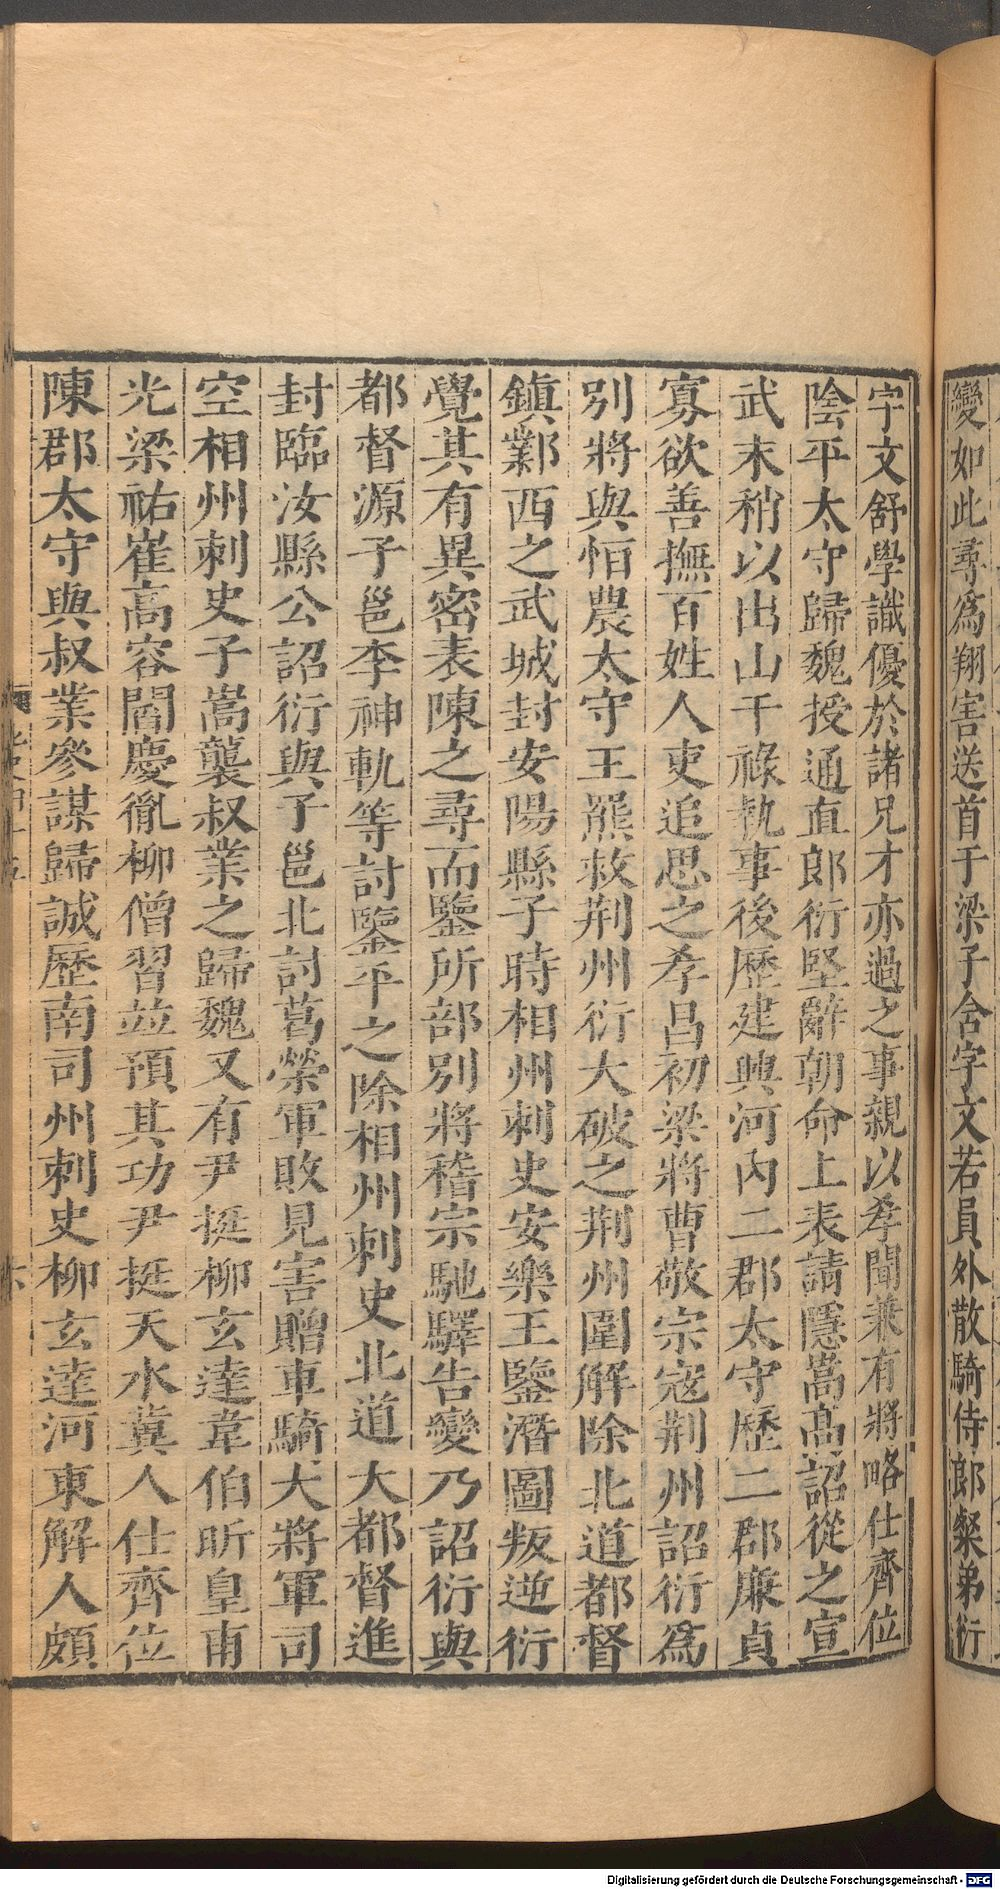 變如此尋爲翔害送首于梁子舍字文若員外散騎侍郎粲弟衍
字文舒學識優於諸兄才亦過之事親以孝聞兼有將略仕齊位
陰平太守歸魏授通直郎衍堅辭朝命上表請隱嵩高詔從之宣
武末稍以出山干祿執事後歷建興河內二郡太守歷二郡廉貞
寡欲善撫百姓人吏追思之孝昌初梁將曹敬宗寇荆州詔衍爲
别將與恒農太守王羆救荆州衍大破之荆州圍解除北道都督
鎮鄴西之武城封安陽縣子時相州刺史安樂王鑒潛圖叛逆衍
覺其有異密表陳之尋而鑒所部别將嵇宗馳驛告變乃詔衍與
都督源子邕李神軌等討鑒平之除相州刺史北道大都督進
封臨汝縣公詔衍與子邕北討葛榮軍敗見害贈車騎大將軍司
空相州刺史子嵩襲叔業之歸魏又有尹挺柳玄達韋伯昕皇甫
光梁祐崔高容閻慶胤柳僧習並預其功尹挺天水冀人仕齊位
陳郡太守與叔業參謀歸誠歷南司州刺史柳玄達河東解人頗
六
Digitalisierung gefördert durch die Deutsche Forschungsgemeinschaft - DFG